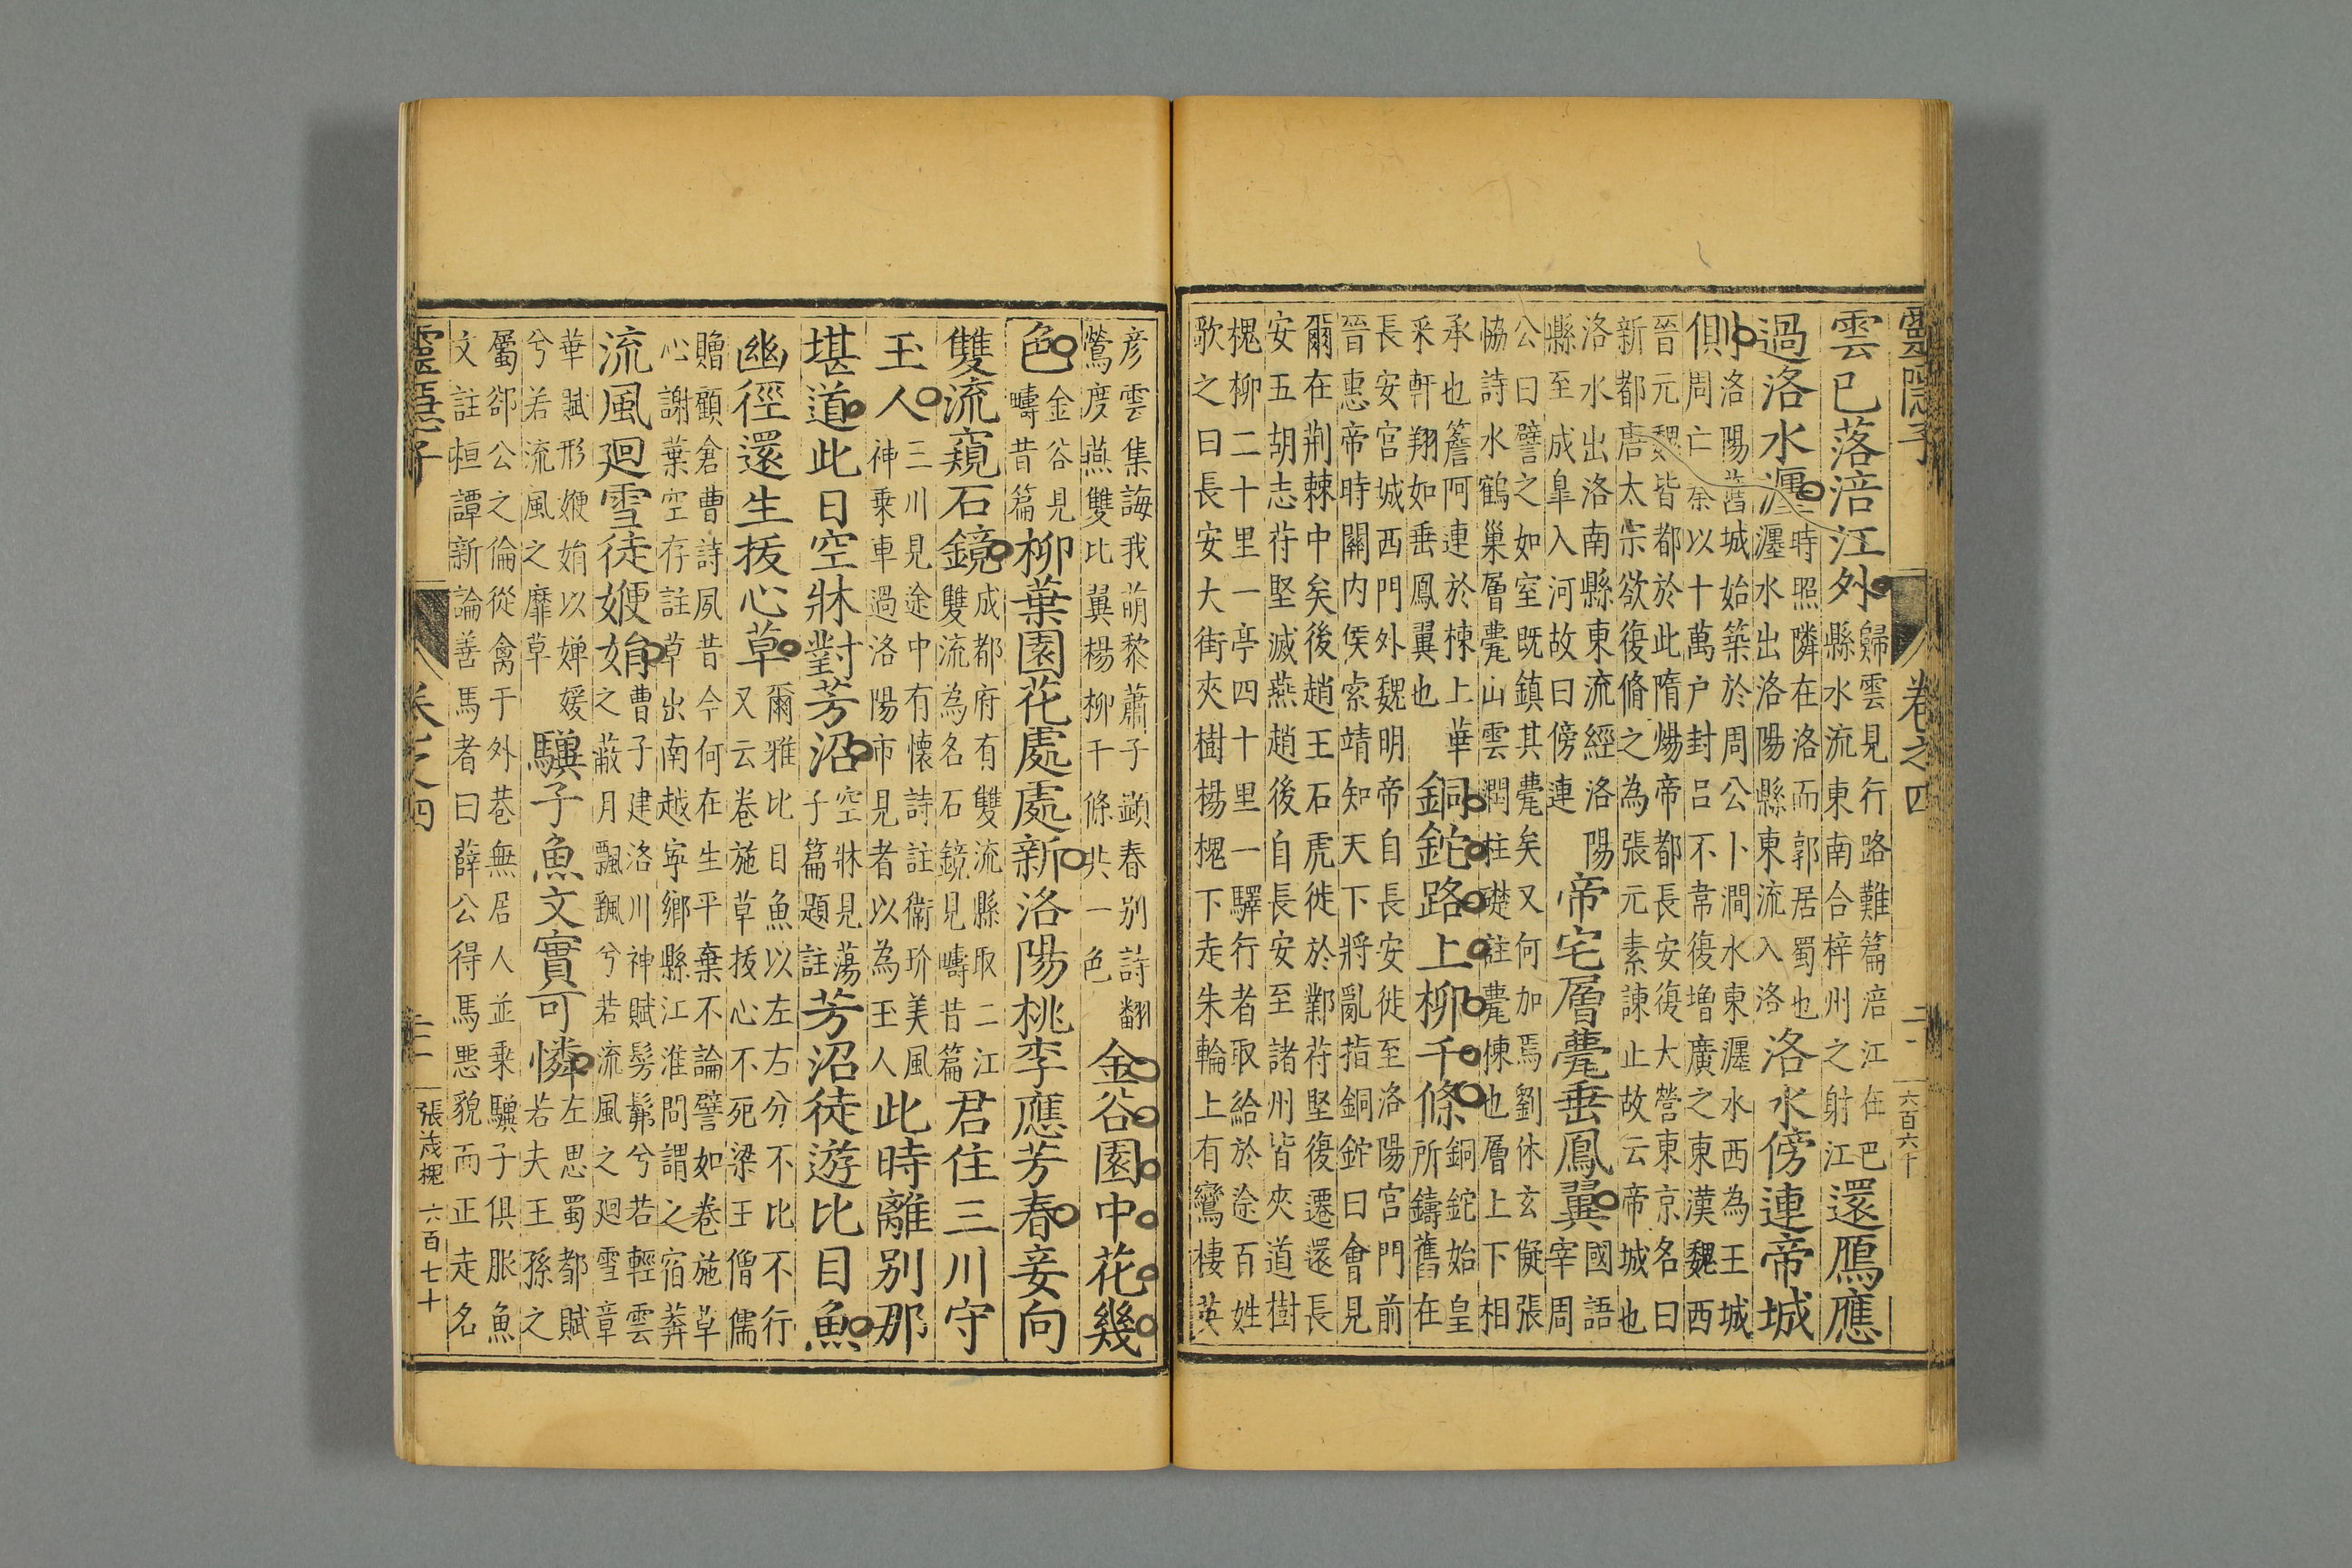 靈隱子 卷之四 六百六十
雲已落涪江外
歸雲見行路難篇涪江在巴
縣水流東南合梓州之射江
還鴈應
過洛水瀍
時照隣在洛而郭居蜀也
瀍水出洛陽縣東流入洛
洛水傍連帝城
側
洛陽舊城始築於周公卜澗水東瀍水西為王城
周亡秦以十萬户封吕不韋復增廣之東漢魏西
晉元魏皆都於此隋煬帝都長安復大營東京名曰
新都唐太宗欲復脩之為張元素諫止故云帝城也
洛水出洛南縣東流經洛陽
縣至成臯入河故曰傍連
帝宅層甍垂鳳翼
國語
宰周
公曰譬之如室既鎮其甍矣又何加焉劉休玄儗張
恊詩水鶴巢層甍山雲潤柱礎註甍棟也層上下相
承也簷阿連於棟上華
釆軒翔如垂鳳翼也
銅鉈路上柳千條
銅鉈始皇
所鑄舊在
長安宫城西門外魏明帝自長安徙至洛陽宫門前
晉惠帝時關内侯索靖知天下將亂指銅鉈曰會見
爾在荆棘中矣後趙王石虎徙於鄴苻堅復遷還長
安五胡志苻堅滅燕趙後自長安至諸州皆夾道樹
槐柳二十里一亭四十里一驛行者取給於途百姓
歌之曰長安大街夾樹楊槐下走朱輪上有鸞棲英
彦雲集誨我萌黎蕭子顯春别詩翻
鶯度燕雙比翼楊柳千條共一色
金谷園中花幾
色
金谷見
疇昔篇
柳葉園花處處新洛陽桃李應芳春妾向
雙流窺石鏡
成都府有雙流縣取二江
雙流為名石鏡見疇昔篇
君住三川守
玉人
三川見途中有懷詩註衛玠美風
神乗車過洛陽市見者以為玉人
此時離别那
堪道此日空牀對芳沼
空牀見蕩
子篇題註
芳沼徒遊比目魚
幽徑還生拔心草
爾雅比目魚以左右分不比不行
又云卷施草拔心不死梁王僧儒
贈顧倉曹詩夙昔今何在生平棄不論譬如卷施草
心謝葉空存註草出南越寧鄉縣江淮問謂之宿莽
流風廻雪徒㛹娟
曹子建洛川神賦髣髴兮若輕雲
之蔽月飄飖兮若流風之廻雪章
華賦形㛹娟以嬋媛
兮若流風之靡草
驥子魚文實可憐
左思蜀都賦
若夫王孫之
屬郤公之倫從禽于外巷無居人並乗驥子俱服魚
文註桓譚新論善馬者曰薛公得馬惡貌而正走名
靈隱子 卷之四 張茂槐 六百七十